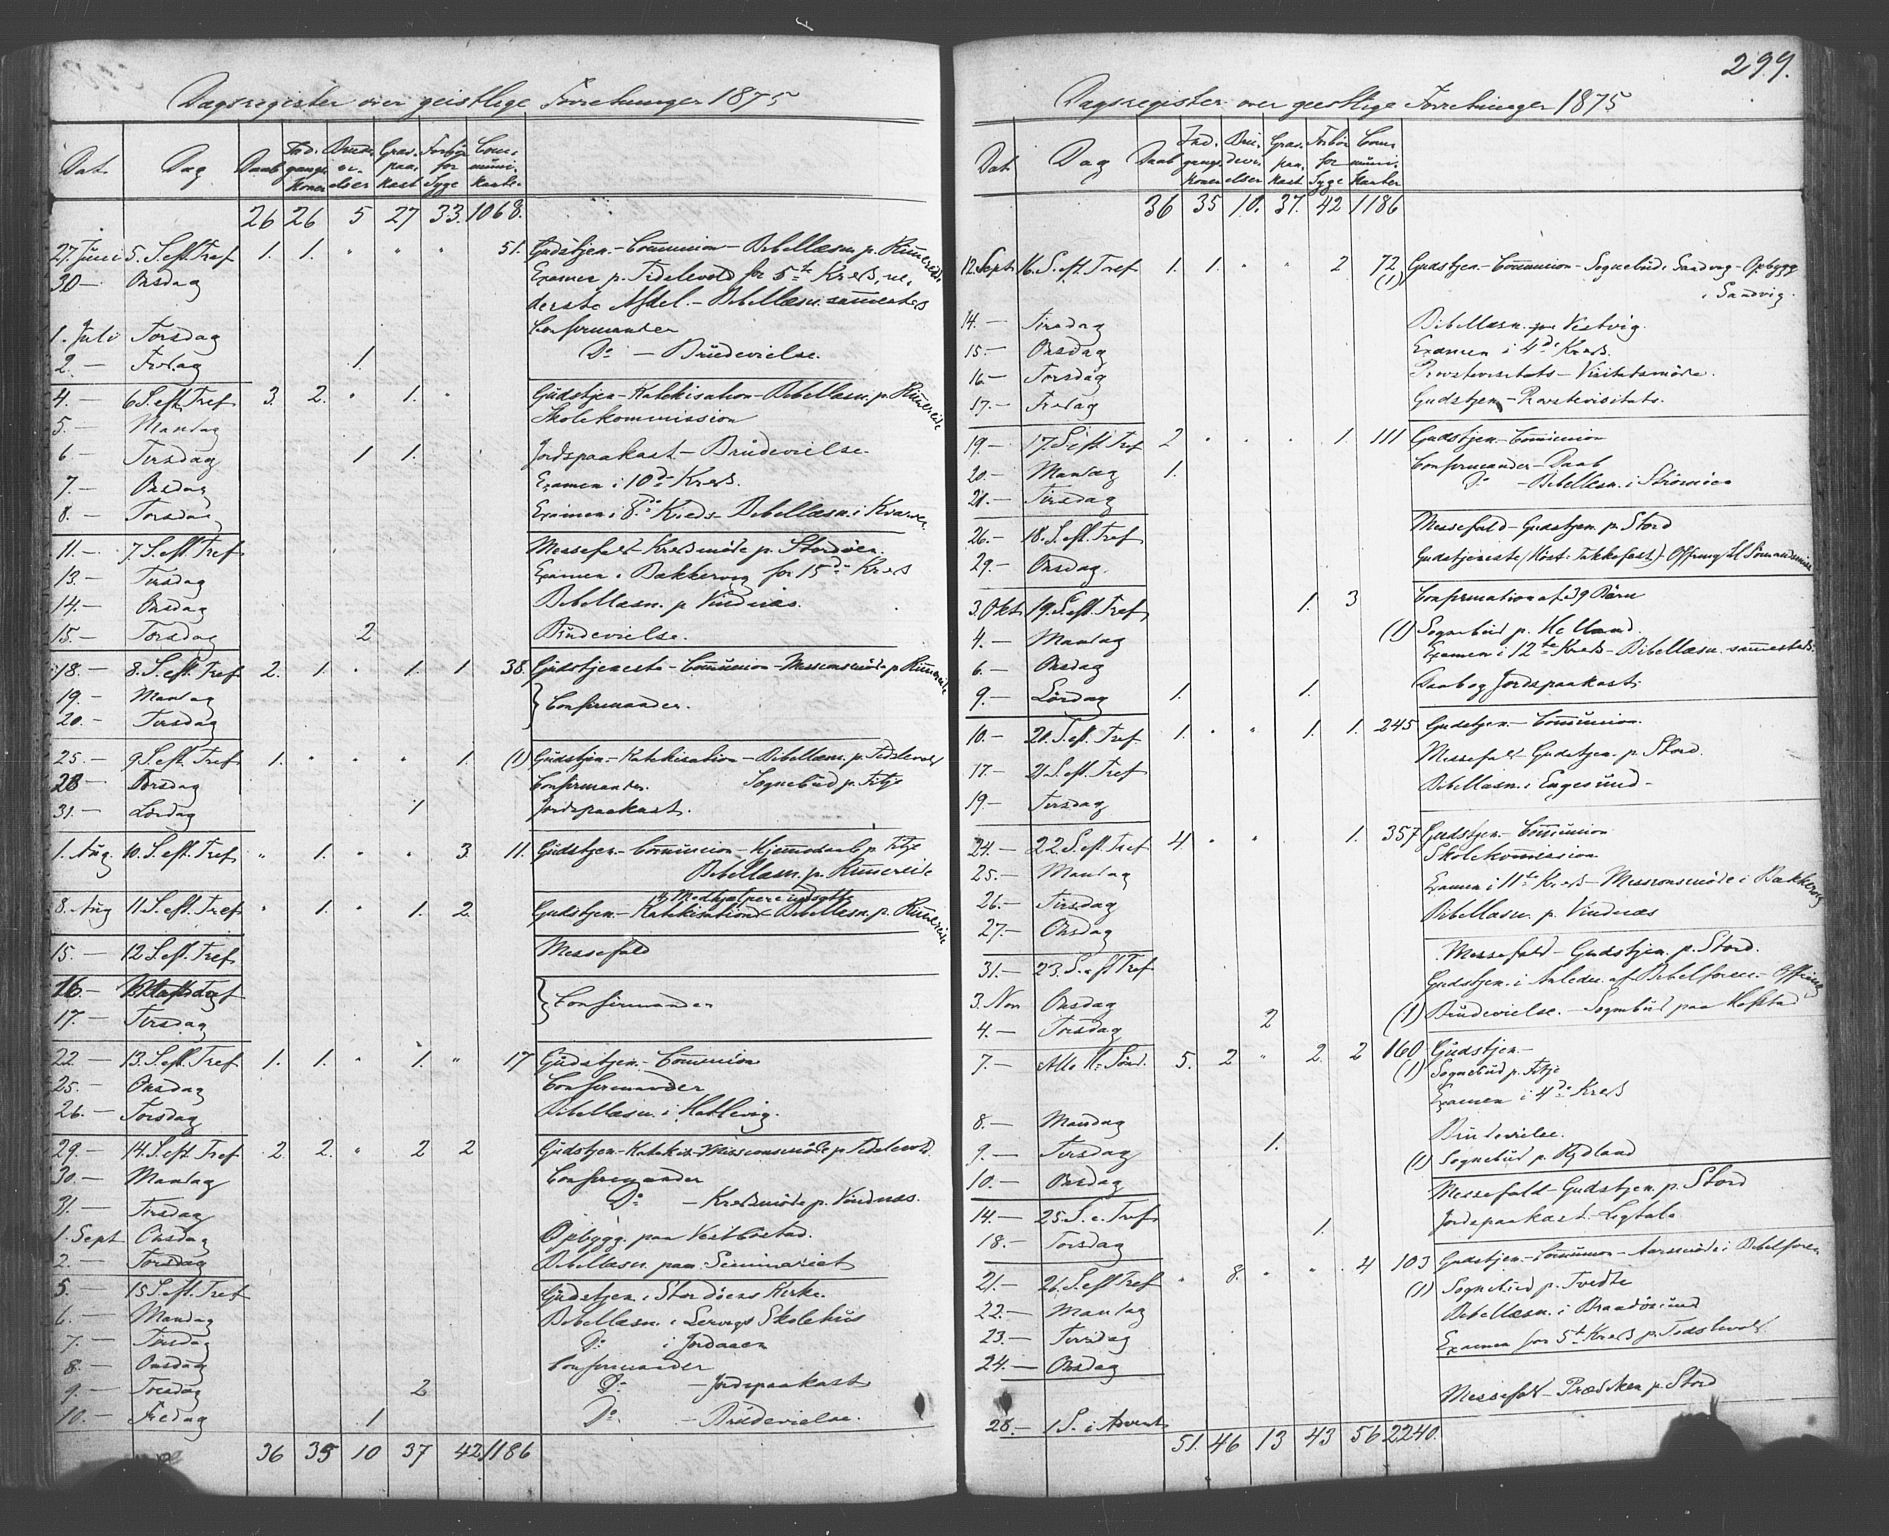 Dagsregister over geistlige Forretninger 1875
Dat. Dag Daab Ind. gangs Koner Brude vi- elser Grav. paa- kast Forbør for Syge Com- muni- kanter
26 26 5 27 33. 1068.
27. Juni 5. S. eft. Tref 1. 1. " " " 51. Gudstjen. - Communion - Bibellæsn. p. Rimereide
30 - Onsdag Examen p. Tidelevold for 5te Kreds, ne-
derste Afdel. - Bibellæsn. sammesteds
1. Juli Torsdag Confirmander
2. - Fredag 1. Do - Brudevielse.
4. - 6. S. eft. Tref 3. 2. " 1. " Gudstjen. - Katekisation - Bibellæsn. p. Rimereide
5. - Mandag Skolekommission
6 - Tirsdag 1 1. Jordpaakast - Brudevielse
7. - Onsdag Examen i 10de Kreds.
8. - Torsdag Examen i 8de Kreds - Bibellæsn. i
11. - 7. S. eft. Tref Messefald - Kredsmøde p. Stordøen.
13. - Tirsdag Examen i Bakkervig for 15de Kreds
14. - Onsdag Bibellæsn. p. Vindnæs.
15. - Torsdag 2 Brudevielse.
18. - 8. S. eft. Tref 2. 1. " 1. 1 38. Gudstjeneste - Communion - Missionsmøde p. Rimereide
19. - Mandag } Confirmander.
20. - Tirsdag
25. - 9. S. eft. Tref 1. " " " 1. (1) Gudstjen. - Katekisation - Bibellæsn. p. Tidelevold
28 - Torsdag Confirmander. Sognebud p. Fitje
31. - Lördag 1 Jordpaakast.
1. Aug. 10. S. eft. Tref " 1. " " 3. 11. Gudstjen. - Communion - Hjemmedaab p. Fitje
Bibellæsn. p. Rimereide
8. Aug 11. S. eft. Tref " 1. " 1. 2. Gudstjen. - Katekisation - Bibellæsn. p. Rimereide
15. - 12 S. eft. Tref Messefald
16. - } Confirmander
17. - Tirsdag
22. - 13. S. eft. Tref 1. 1. " 1. " 17 Gudstjen. - Communion
25. - Onsdag Confirmander
26. - Torsdag Bibellæsn. i
29. - 14. S. eft. Tref 2. 2. " 2 2 Gudstjen. - Katekis. - Missionsmöde p. Tidelevold
30. - Mandag Confirmander
31. - Tirsdag Do - Kredsmöde p. Vindnæs.
1. Sept Onsdag Opbygg. paa Vestböstad.
2. - Torsdag Bibellæsn. paa Seminariet
5. - 15 S. eft. Tref Gudstjen. i Stordöens Kirke.
6. - Mandag Bibellæsn. i Lervigs Skolehus
7. - Tirsdag Do i Jordaaen
8. - Onsdag Confirmander
9. - Torsdag 2 Do - Jordpaakast
10. - Fredag 1 Do. - Brudevielse.
36 35 10 37 42 1186
299.
Dagsregister over geistlige Forretninger 1875
Dat. Dag Daab Ind. gangs Koner Bru- devi- elser Grav. paa- kast Forbör for Syge Com- muni- kanter
36 35 10. 37. 42 1186
12. Sept. 16. S. eft. Tref 1. 1. " " 2 72 (1) Gudstjen. - Communion - Sognebud i Sandvig - Opbygg
i Sandvig.
14. - Tirsdag Bibellæsn. paa Vestvig.
15. - Onsdag Examen i 4de Kreds.
16. - Torsdag Provstevisitats - Visitatsmöde.
17. - Fredag Gudstjen - Provstevisitats.
19. - 17. S. eft. Tref 2 " " " 1. 111 Gudstjen. - Communion
20. - Mandag 1. Confirmander - Daab
21. - Tirsdag Do - Bibellæsn. i
26. - 18. S. eft. Tref Messefald - Gudstjen. p. Stord
29. - Onsdag. Gudstjeneste (Höst-Takkefest) - Offring til Sömandsmiss.
3. Okt. 19. S. eft. Tref 1. 3 Confirmation af 39 Börn
4. - Mandag (1) Sognebud p. Helland.
6 - Onsdag Examen i 12te Kreds - Bibellæsn. sammesteds.
9. - Lördag 1. 1. Daab og Jordspaakast.
10. - 20. S. eft. Tref. 1. " " 1. 1. 245 Gudstjen. - Communion.
17. - 21. S. eft. Tref Messefald - Gudstjen. p. Stord.
19 - Tirsdag Bibellæsn. i Engesund -
24. - 22. S. eft. Tref 4 " " 1. 357 Gudstjen. - Communion
25. - Mandag Skolekommission
26. - Tirsdag Examen i 11te Kreds - Missionsmöde i Bækkervig
27. - Onsdag Bibellæsn. p. Vindnæs
31. - 23. S. eft Tref Messefald - Gudstjen. p. Stord.
3. Nov Onsdag Gudstjen. i Anledn. af Bibelforen. - Offring
4. - Torsdag 2 (1) Brudevielse. - Sognebud paa
7. - Alle H. Sönd. 5. 2 " 2 2 160 Gudstjen -
(1) Sognebud p. Fitje
Examen i 4de Kreds
8. - Mandag
9. - Tirsdag 1. Brudevielse.
10. - Onsdag (1) Sognebud p. Rydland
14. - 25. S. e. Tref Messefald - Gudstjen. p. Stord
18. - Torsdag 1. Jordspaakast - Ligtale
21. - 26. S. eft Tref " 8. " " 4 103 Gudstjen. - Communion - Aarsmöde i Bibelforen
22. - Mandag (1) Sognebud p. Tvedte
23. - Tirsdag Bibellæsn. i Brandösund
24. - Onsdag Examen for 5te Kreds p. Tidelevold
28. - 1 S. i Advent Messefald - Prædiken p. Stord
51. 46 13 43 56 2240.